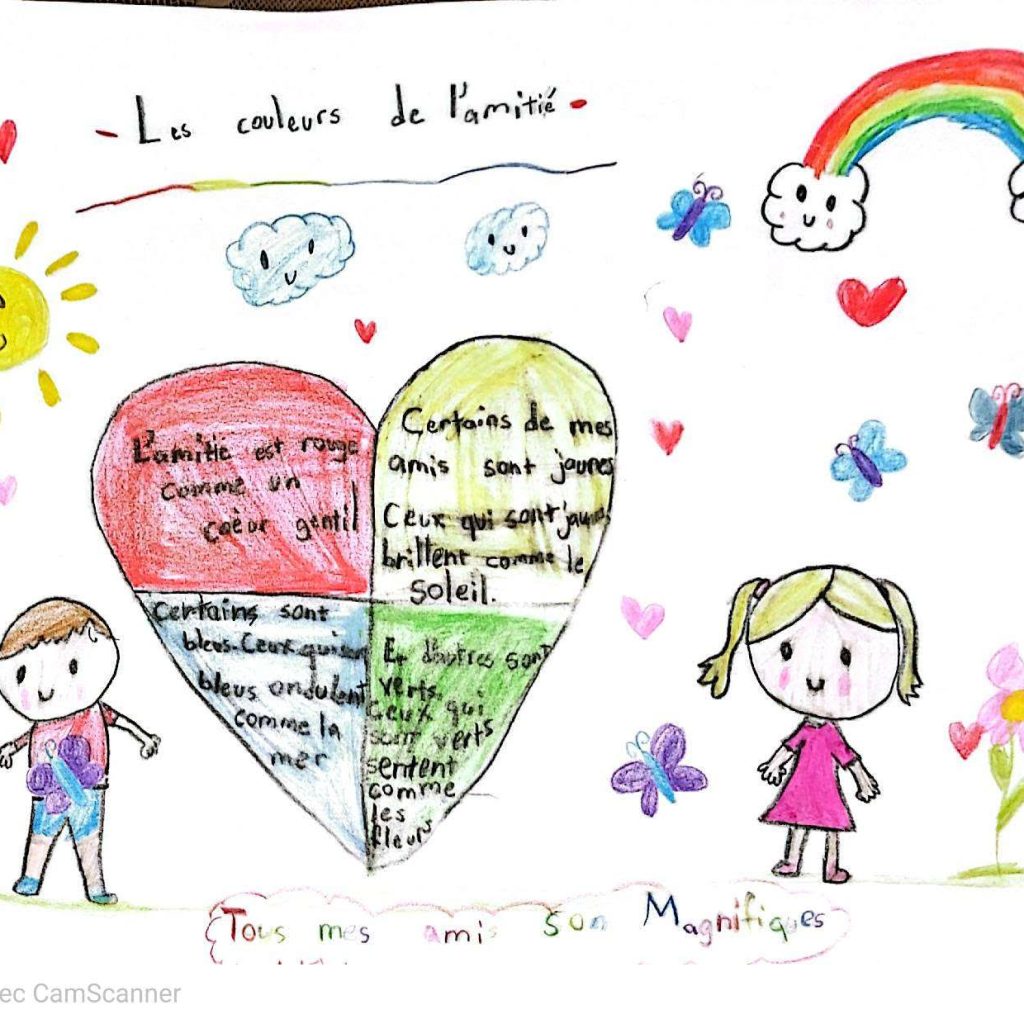 - Les couleurs de l'amitié -
L'amitié est rouge
comme un
coeur gentil
Certains de mes
amis sont jaunes
Ceux qui sont jaunes
brillent comme le
soleil.
Certains sont
bleus. Ceux qui sont
bleus ondulent
comme la
mer
Et d'autres sont
verts.
Ceux qui
sont verts
sentent
comme
les
fleurs
Tous mes amis son Magnifiques
ec CamScanner